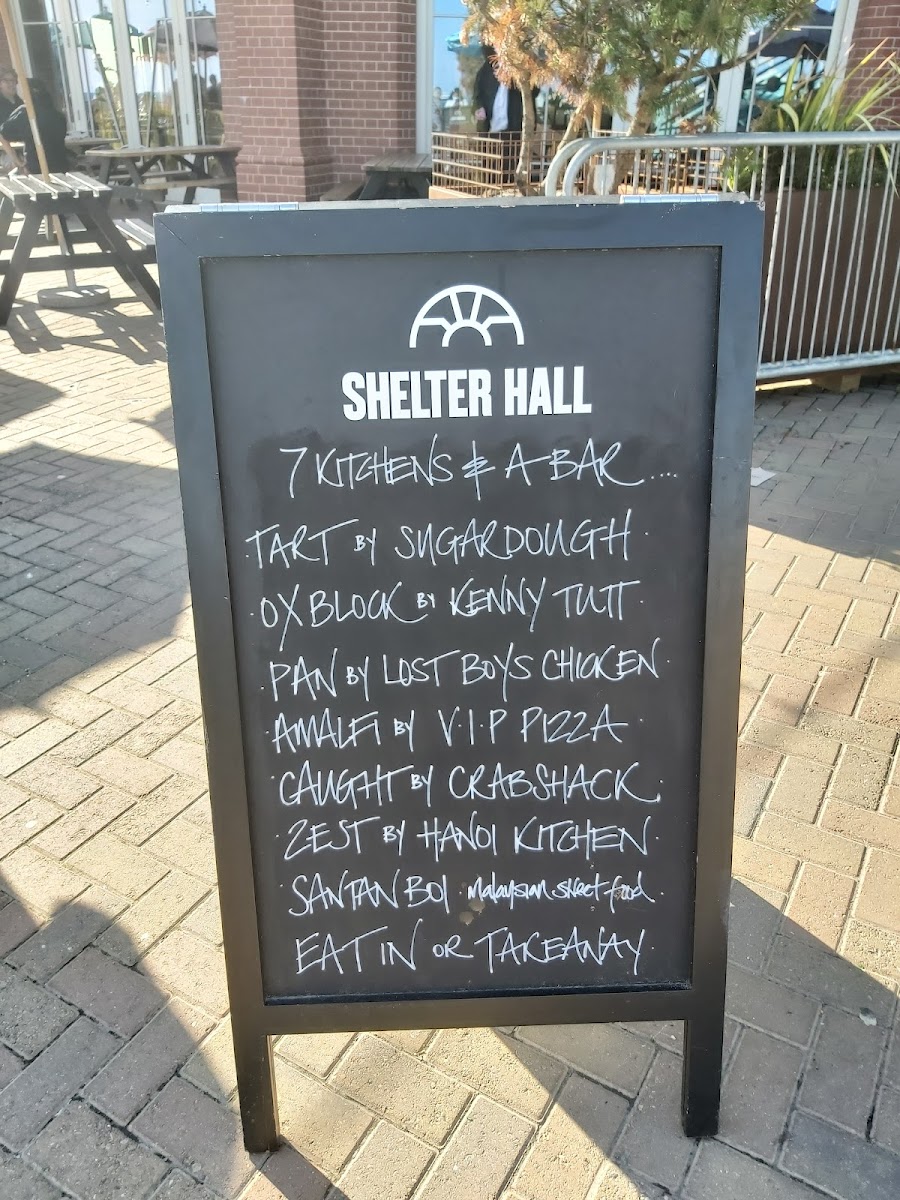 SHELTER HALL
7 KITCHENS & A BAR....
·TART BY SUGARDOUGH·
·OX BLOCK BY KENNY TUTT·
·PAN BY LOST BOYS CHICKEN·
·AMALFI BY V·I·P PIZZA·
·CAUGHT BY CRABSHACK·
·ZEST BY HANOI KITCHEN·
·SANTAN BOI malaysian street food·
EAT IN OR TAKEAWAY·